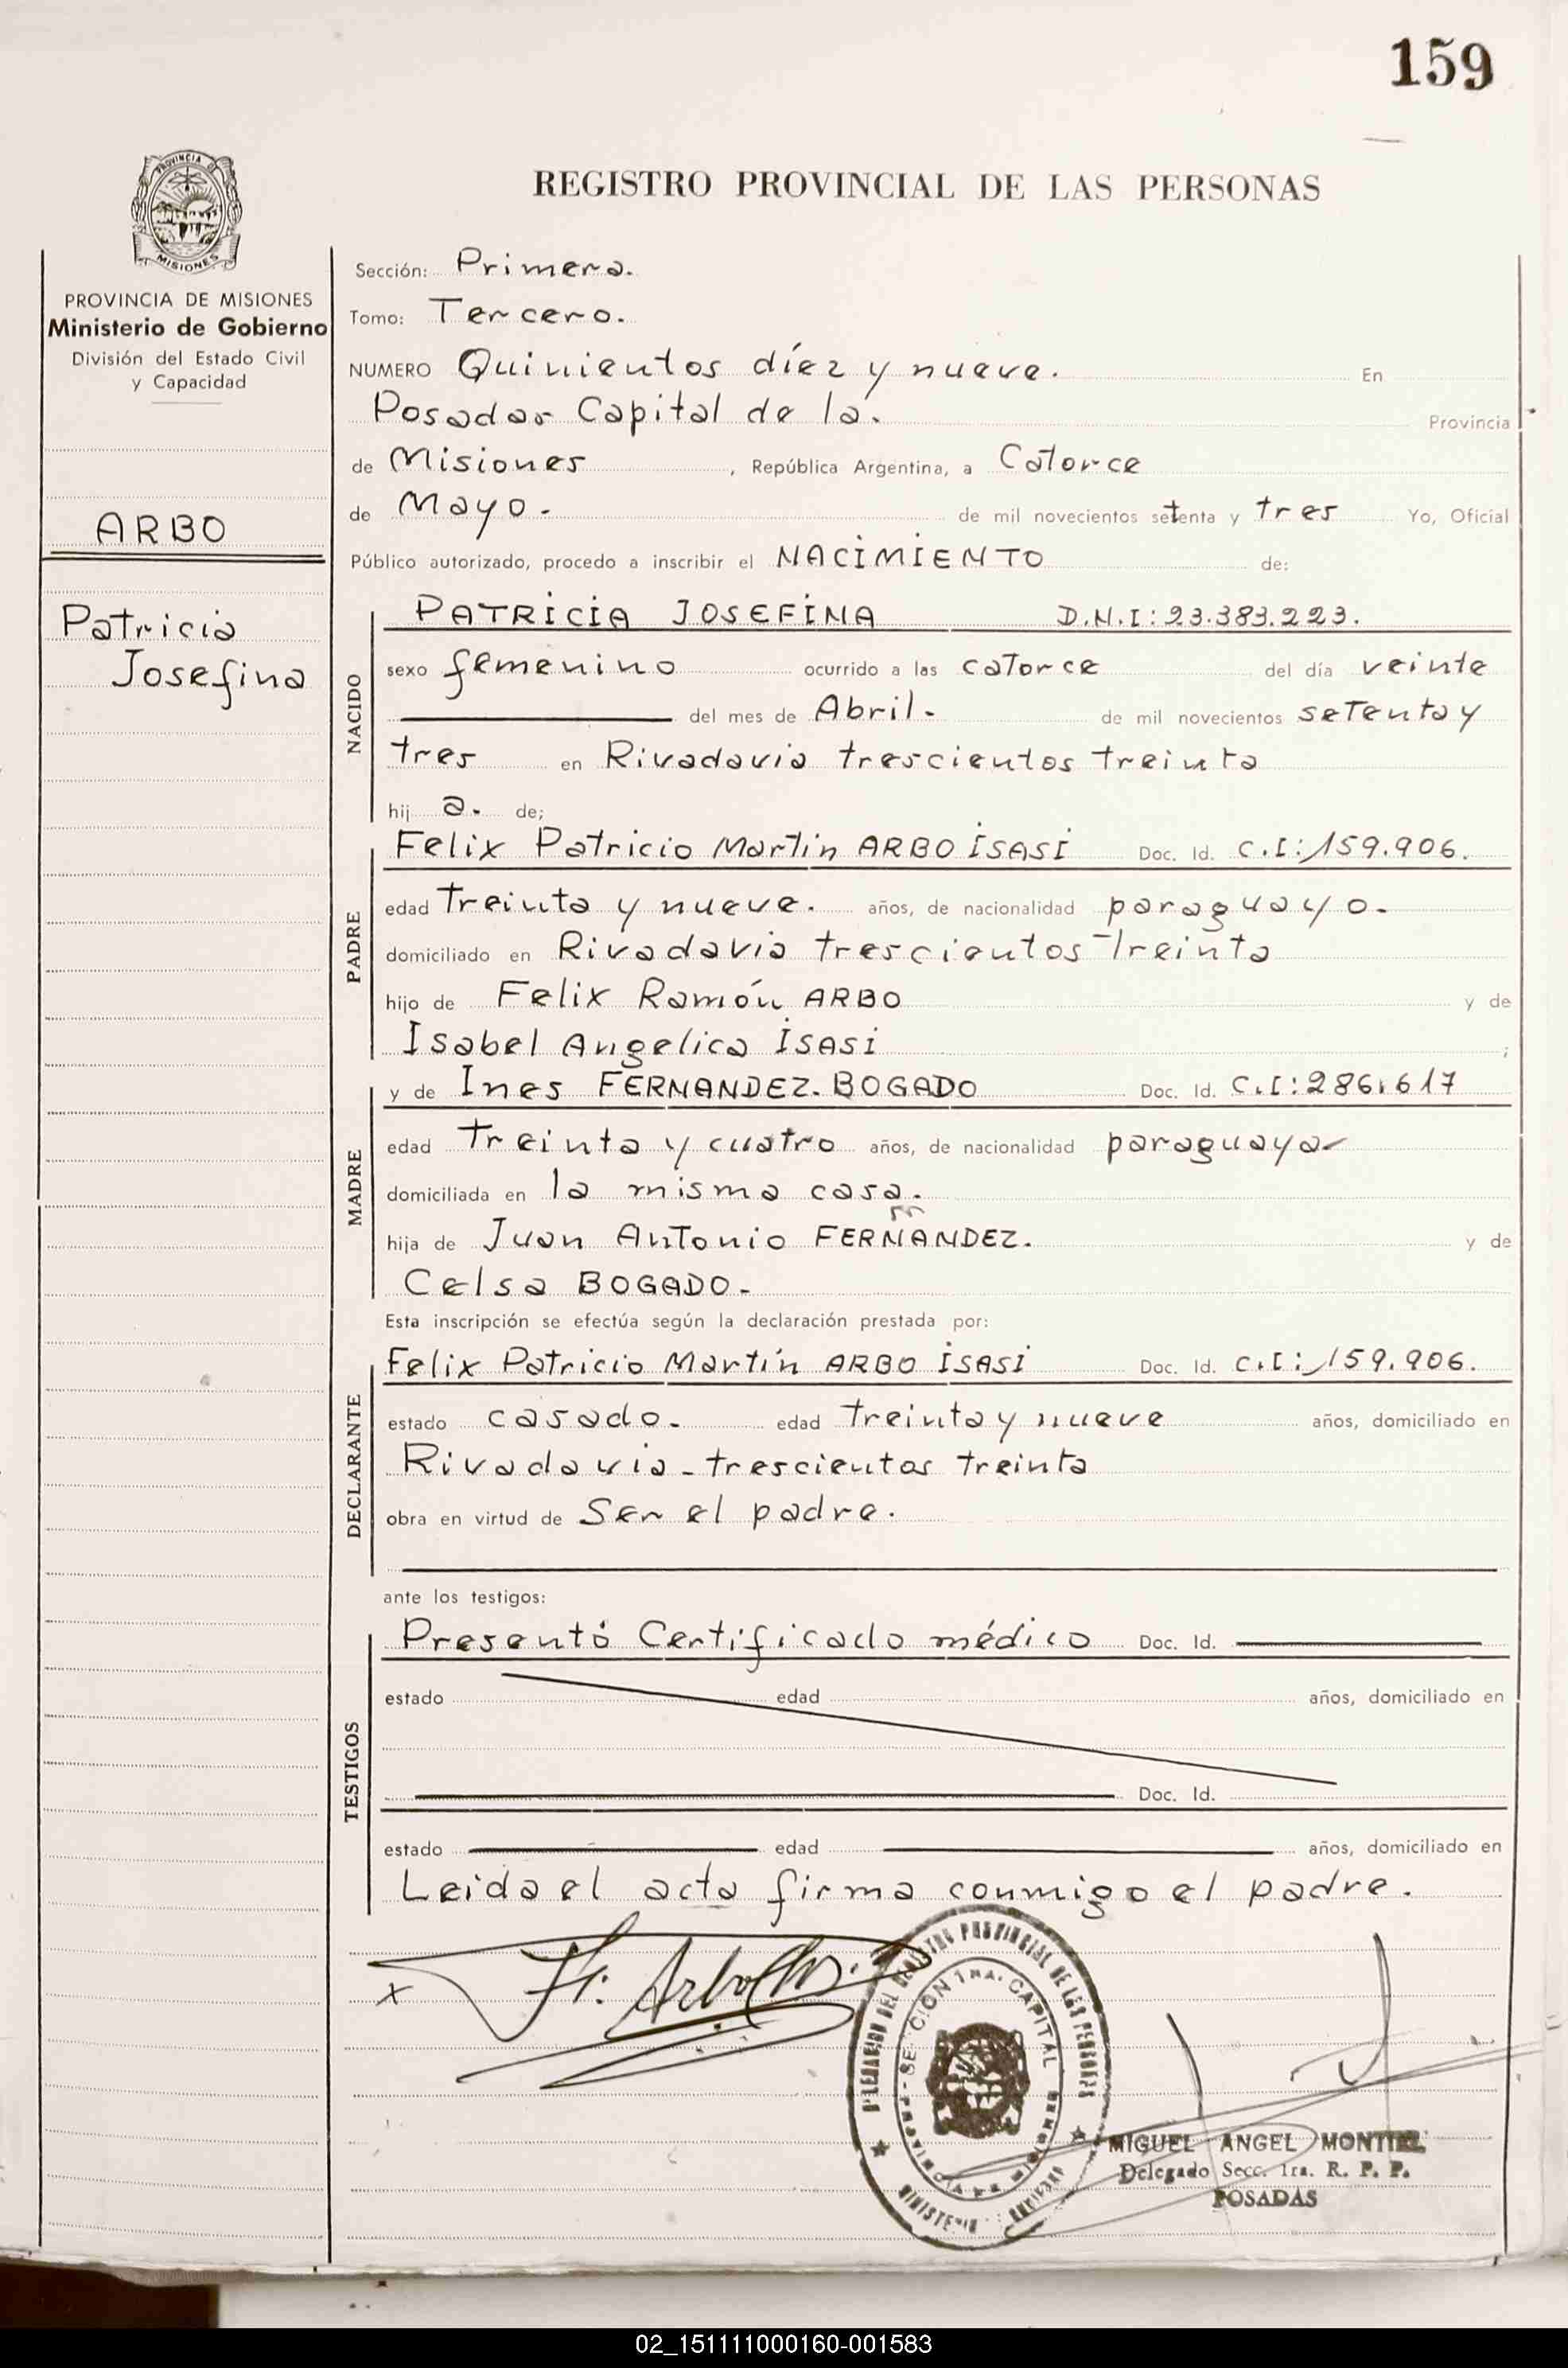 159
PROVINCIA DE
MISIONES
PROVINCIA DE MISIONES
Ministerio de Gobierno
División del Estado Civil
y Capacidad
ARBO
Patricia
Josefina
REGISTRO PROVINCIAL DE LAS PERSONAS
Sección: Primera.
Tomo: Tercero.
NUMERO Quinientos díez y nueve. En
Posadas Capital de la. Provincia
de Misiones, República Argentina, a Catorce
de Mayo. de mil novecientos setenta y tres Yo, Oficial
Público autorizado, procedo a inscribir el NACIMIENTO de:
NACIDO
PATRICIA JOSEFINA D.N.I: 23.383.223.
sexo femenino ocurrido a las catorce del día veinte
del mes de Abril. de mil novecientos setenta y
tres en Rivadavia trescientos treinta
hij a. de;
PADRE
Felix Patricio Martín ARBO ISASI Doc. Id. C.I: 159.906.
edad Treinta y nueve. años, de nacionalidad paraguayo.
domiciliado en Rivadavia trescientos Treinta
hijo de Felix Ramón ARBO y de
Isabel Angelica ISASI ;
MADRE
y de Ines FERNANDEZ.BOGADO Doc. Id. C.I: 286.617
edad Treinta y cuatro años, de nacionalidad paraguaya
domiciliada en la misma casa.
hija de Juan Antonio FERNANDEZ. y de
Celsa BOGADO.
Esta inscripción se efectúa según la declaración prestada por:
DECLARANTE
Felix Patricio Martín ARBO ISASI Doc. Id. C.I: 159.906.
estado casado. edad Treinta y nueve años, domiciliado en
Rivadavia - trescientos treinta
obra en virtud de Ser el padre.
ante los testigos:
TESTIGOS
Presentó Certificado médico Doc. Id.
estado edad años, domiciliado en
Doc. Id.
estado edad años, domiciliado en
Leida el acta firma conmigo el padre.
x
DELEGACION DEL REGISTRO PROVINCIAL DE LAS PERSONAS
SECCION 1RA. CAPITAL
MIGUEL ANGEL MONTIEL
Delegado Secc. 1ra. R. P. P.
POSADAS
02_151111000160-001583